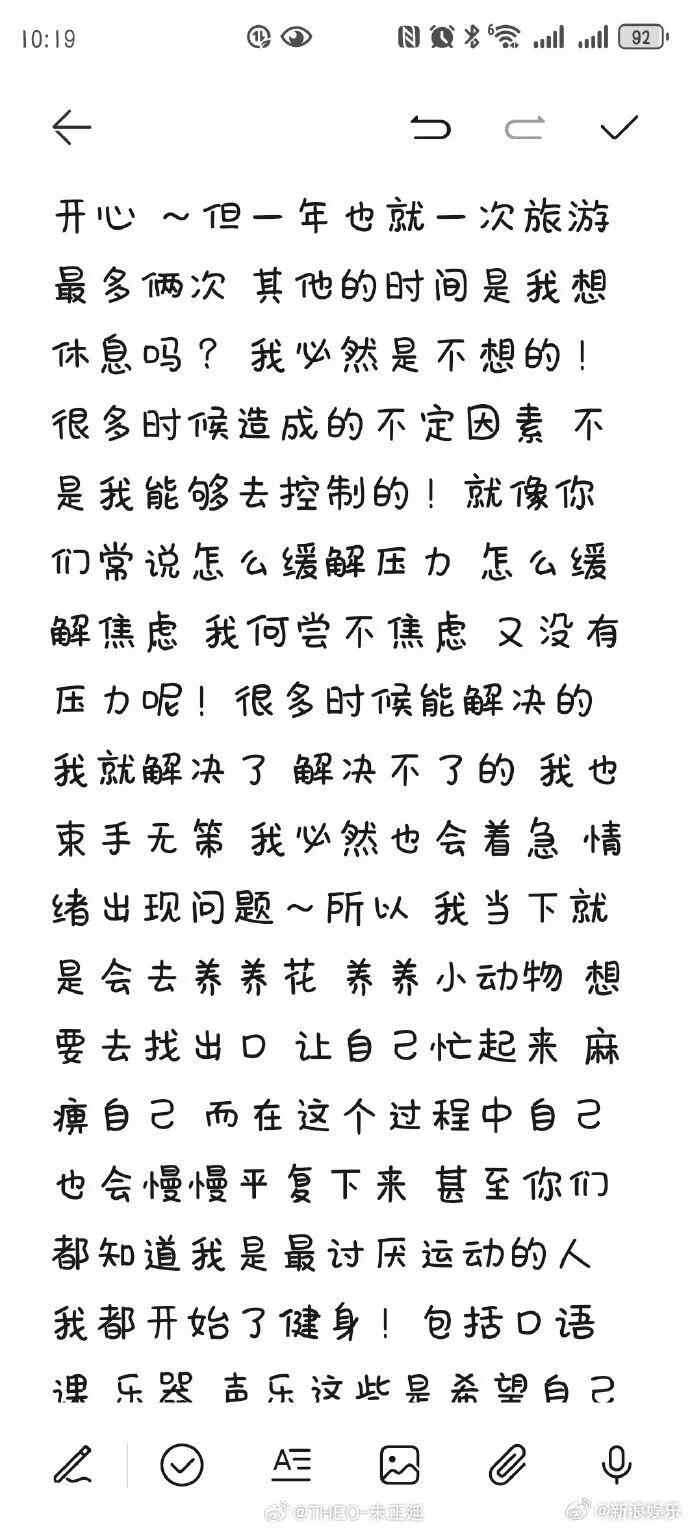 10:19
6
92
开心 ~但一年也就一次旅游
最多俩次 其他的时间是我想
休息吗？ 我必然是不想的！
很多时候造成的不定因素 不
是我能够去控制的！就像你
们常说怎么缓解压力 怎么缓
解焦虑 我何尝不焦虑 又没有
压力呢！很多时候能解决的
我就解决了 解决不了的 我也
束手无策 我必然也会着急 情
绪出现问题~所以 我当下就
是会去养养花 养养小动物 想
要去找出口 让自己忙起来 麻
痹自己 而在这个过程中自己
也会慢慢平复下来 甚至你们
都知道我是最讨厌运动的人
我都开始了健身！包括口语
课 乐器 声乐这些是希望自己
A
@THEO-朱正廷
@新浪娱乐